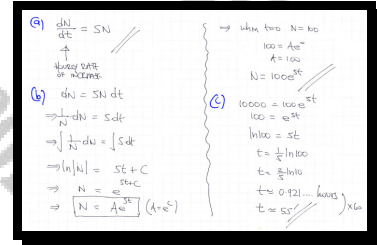 (a) dN/dt = 5N
↑
HOURLY RATE
OF INCREASE
(b) dN = 5N dt
⇒ 1/N dN = 5 dt
⇒ ∫ 1/N dN = ∫ 5 dt
⇒ ln|N| = 5t + C
⇒ N = e^(5t+C)
⇒ N = Ae^(5t) (A = e^C)
⇒ when t=0 N=100
100 = Ae^0
A = 100
N = 100e^(5t)
(c) 10000 = 100e^(5t)
100 = e^(5t)
ln100 = 5t
t = 1/5 ln100
t = 2/5 ln10
t ≈ 0.921.... hours
t ≈ 55' ) ×60